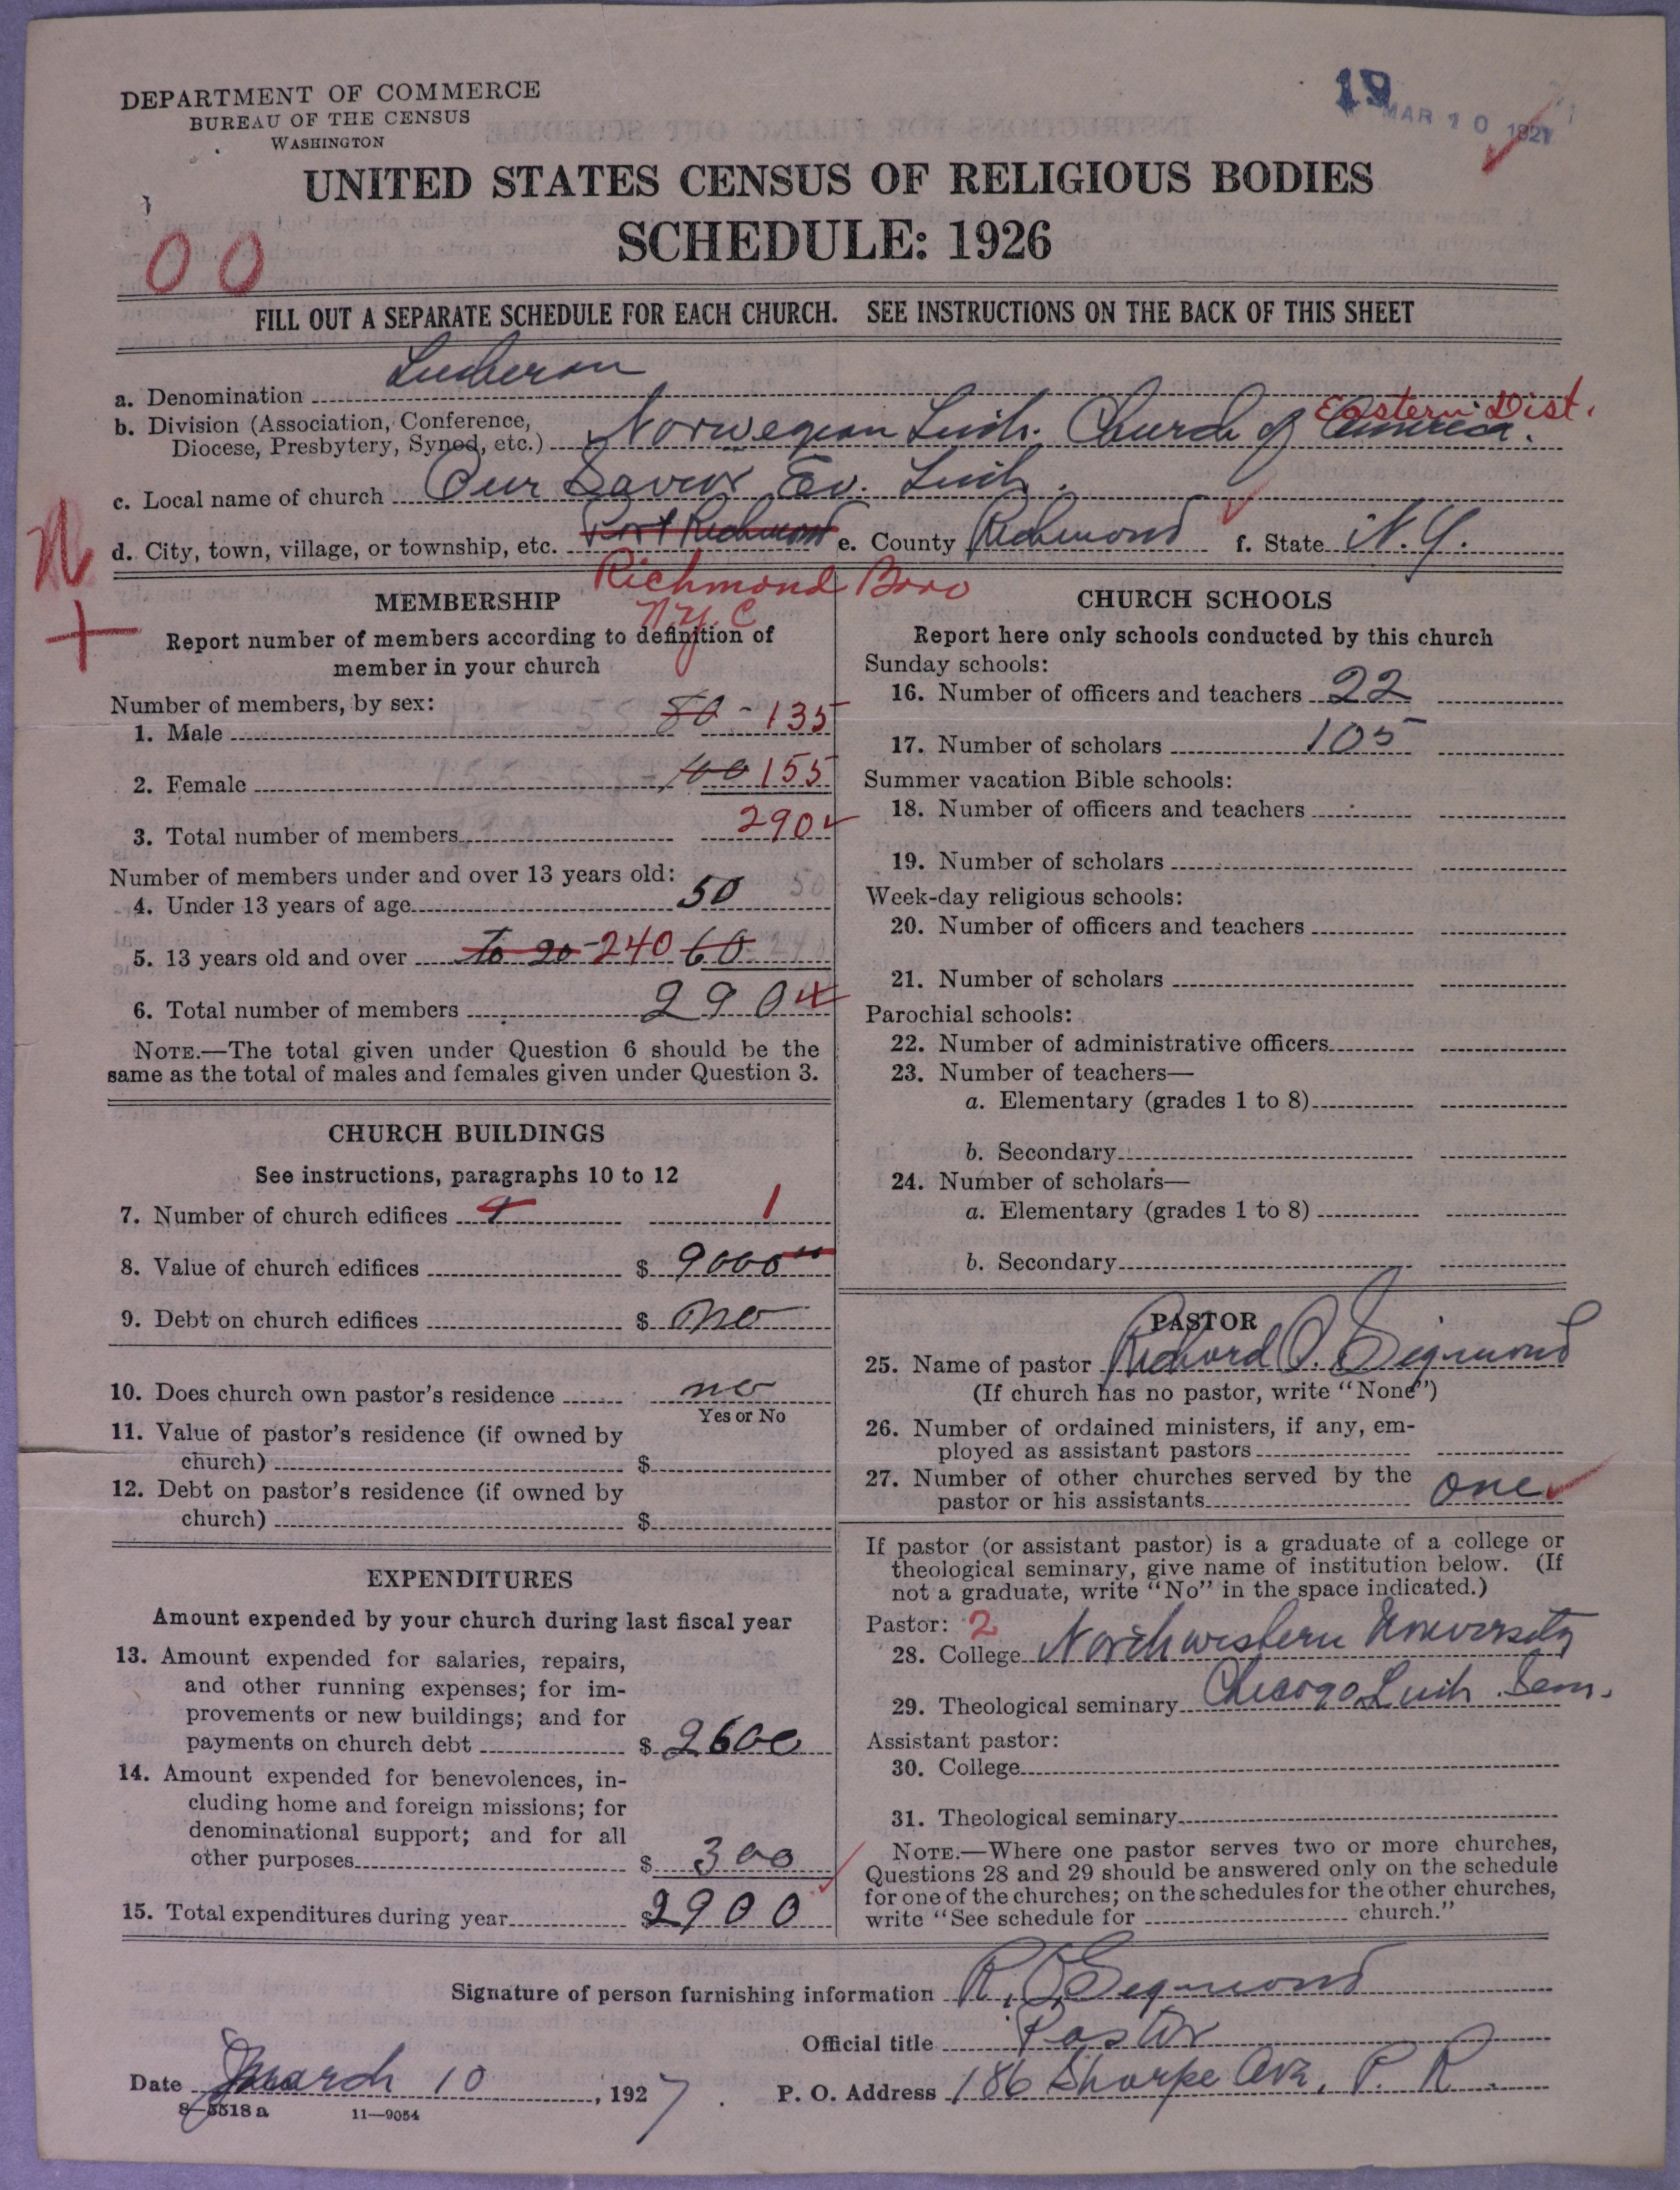 DEPARTMENT OF COMMERCE
BUREAU OF THE CENSUS
WASHINGTON
19
MAR 10 1927
UNITED STATES CENSUS OF RELIGIOUS BODIES
SCHEDULE: 1926
00
FILL OUT A SEPARATE SCHEDULE FOR EACH CHURCH. SEE INSTRUCTIONS ON THE BACK OF THIS SHEET
a. Denomination Lutheran
b. Division (Association, Conference,
Diocese, Presbytery, Synod, etc.) Norwegian Luth. Church of America. Eastern Dist.
c. Local name of church Our Savior Ev. Luth.
d. City, town, village, or township, etc. Port Richmond e. County Richmond f. State N.Y.
Richmond Boro
N.Y.C
N
+
MEMBERSHIP
Report number of members according to definition of
member in your church
Number of members, by sex:
1. Male 80 - 135
2. Female 100 155
3. Total number of members 290
Number of members under and over 13 years old:
4. Under 13 years of age 50 50
5. 13 years old and over To 20 - 240 60
6. Total number of members 290
NOTE.—The total given under Question 6 should be the
same as the total of males and females given under Question 3.
CHURCH BUILDINGS
See instructions, paragraphs 10 to 12
7. Number of church edifices 1 1
8. Value of church edifices $ 9000 00
9. Debt on church edifices $ no
10. Does church own pastor's residence no
Yes or No
11. Value of pastor's residence (if owned by
church) $
12. Debt on pastor's residence (if owned by
church) $
EXPENDITURES
Amount expended by your church during last fiscal year
13. Amount expended for salaries, repairs,
and other running expenses; for im-
provements or new buildings; and for
payments on church debt $ 2600
14. Amount expended for benevolences, in-
cluding home and foreign missions; for
denominational support; and for all
other purposes $ 300
15. Total expenditures during year $ 2900
CHURCH SCHOOLS
Report here only schools conducted by this church
Sunday schools:
16. Number of officers and teachers 22
17. Number of scholars 105
Summer vacation Bible schools:
18. Number of officers and teachers
19. Number of scholars
Week-day religious schools:
20. Number of officers and teachers
21. Number of scholars
Parochial schools:
22. Number of administrative officers
23. Number of teachers—
a. Elementary (grades 1 to 8)
b. Secondary
24. Number of scholars—
a. Elementary (grades 1 to 8)
b. Secondary
PASTOR
25. Name of pastor Richard O. Sigmond
(If church has no pastor, write "None")
26. Number of ordained ministers, if any, em-
ployed as assistant pastors
27. Number of other churches served by the
pastor or his assistants one
If pastor (or assistant pastor) is a graduate of a college or
theological seminary, give name of institution below. (If
not a graduate, write "No" in the space indicated.)
Pastor: 2
28. College Northwestern University
29. Theological seminary Chicago Luth. Sem.
Assistant pastor:
30. College
31. Theological seminary
NOTE.—Where one pastor serves two or more churches,
Questions 28 and 29 should be answered only on the schedule
for one of the churches; on the schedules for the other churches,
write "See schedule for church."
Signature of person furnishing information R. O. Sigmond
Official title Pastor
Date March 10, 1927. P. O. Address 186 Sharpe Ave, P. R.
8-5518a 11—9054